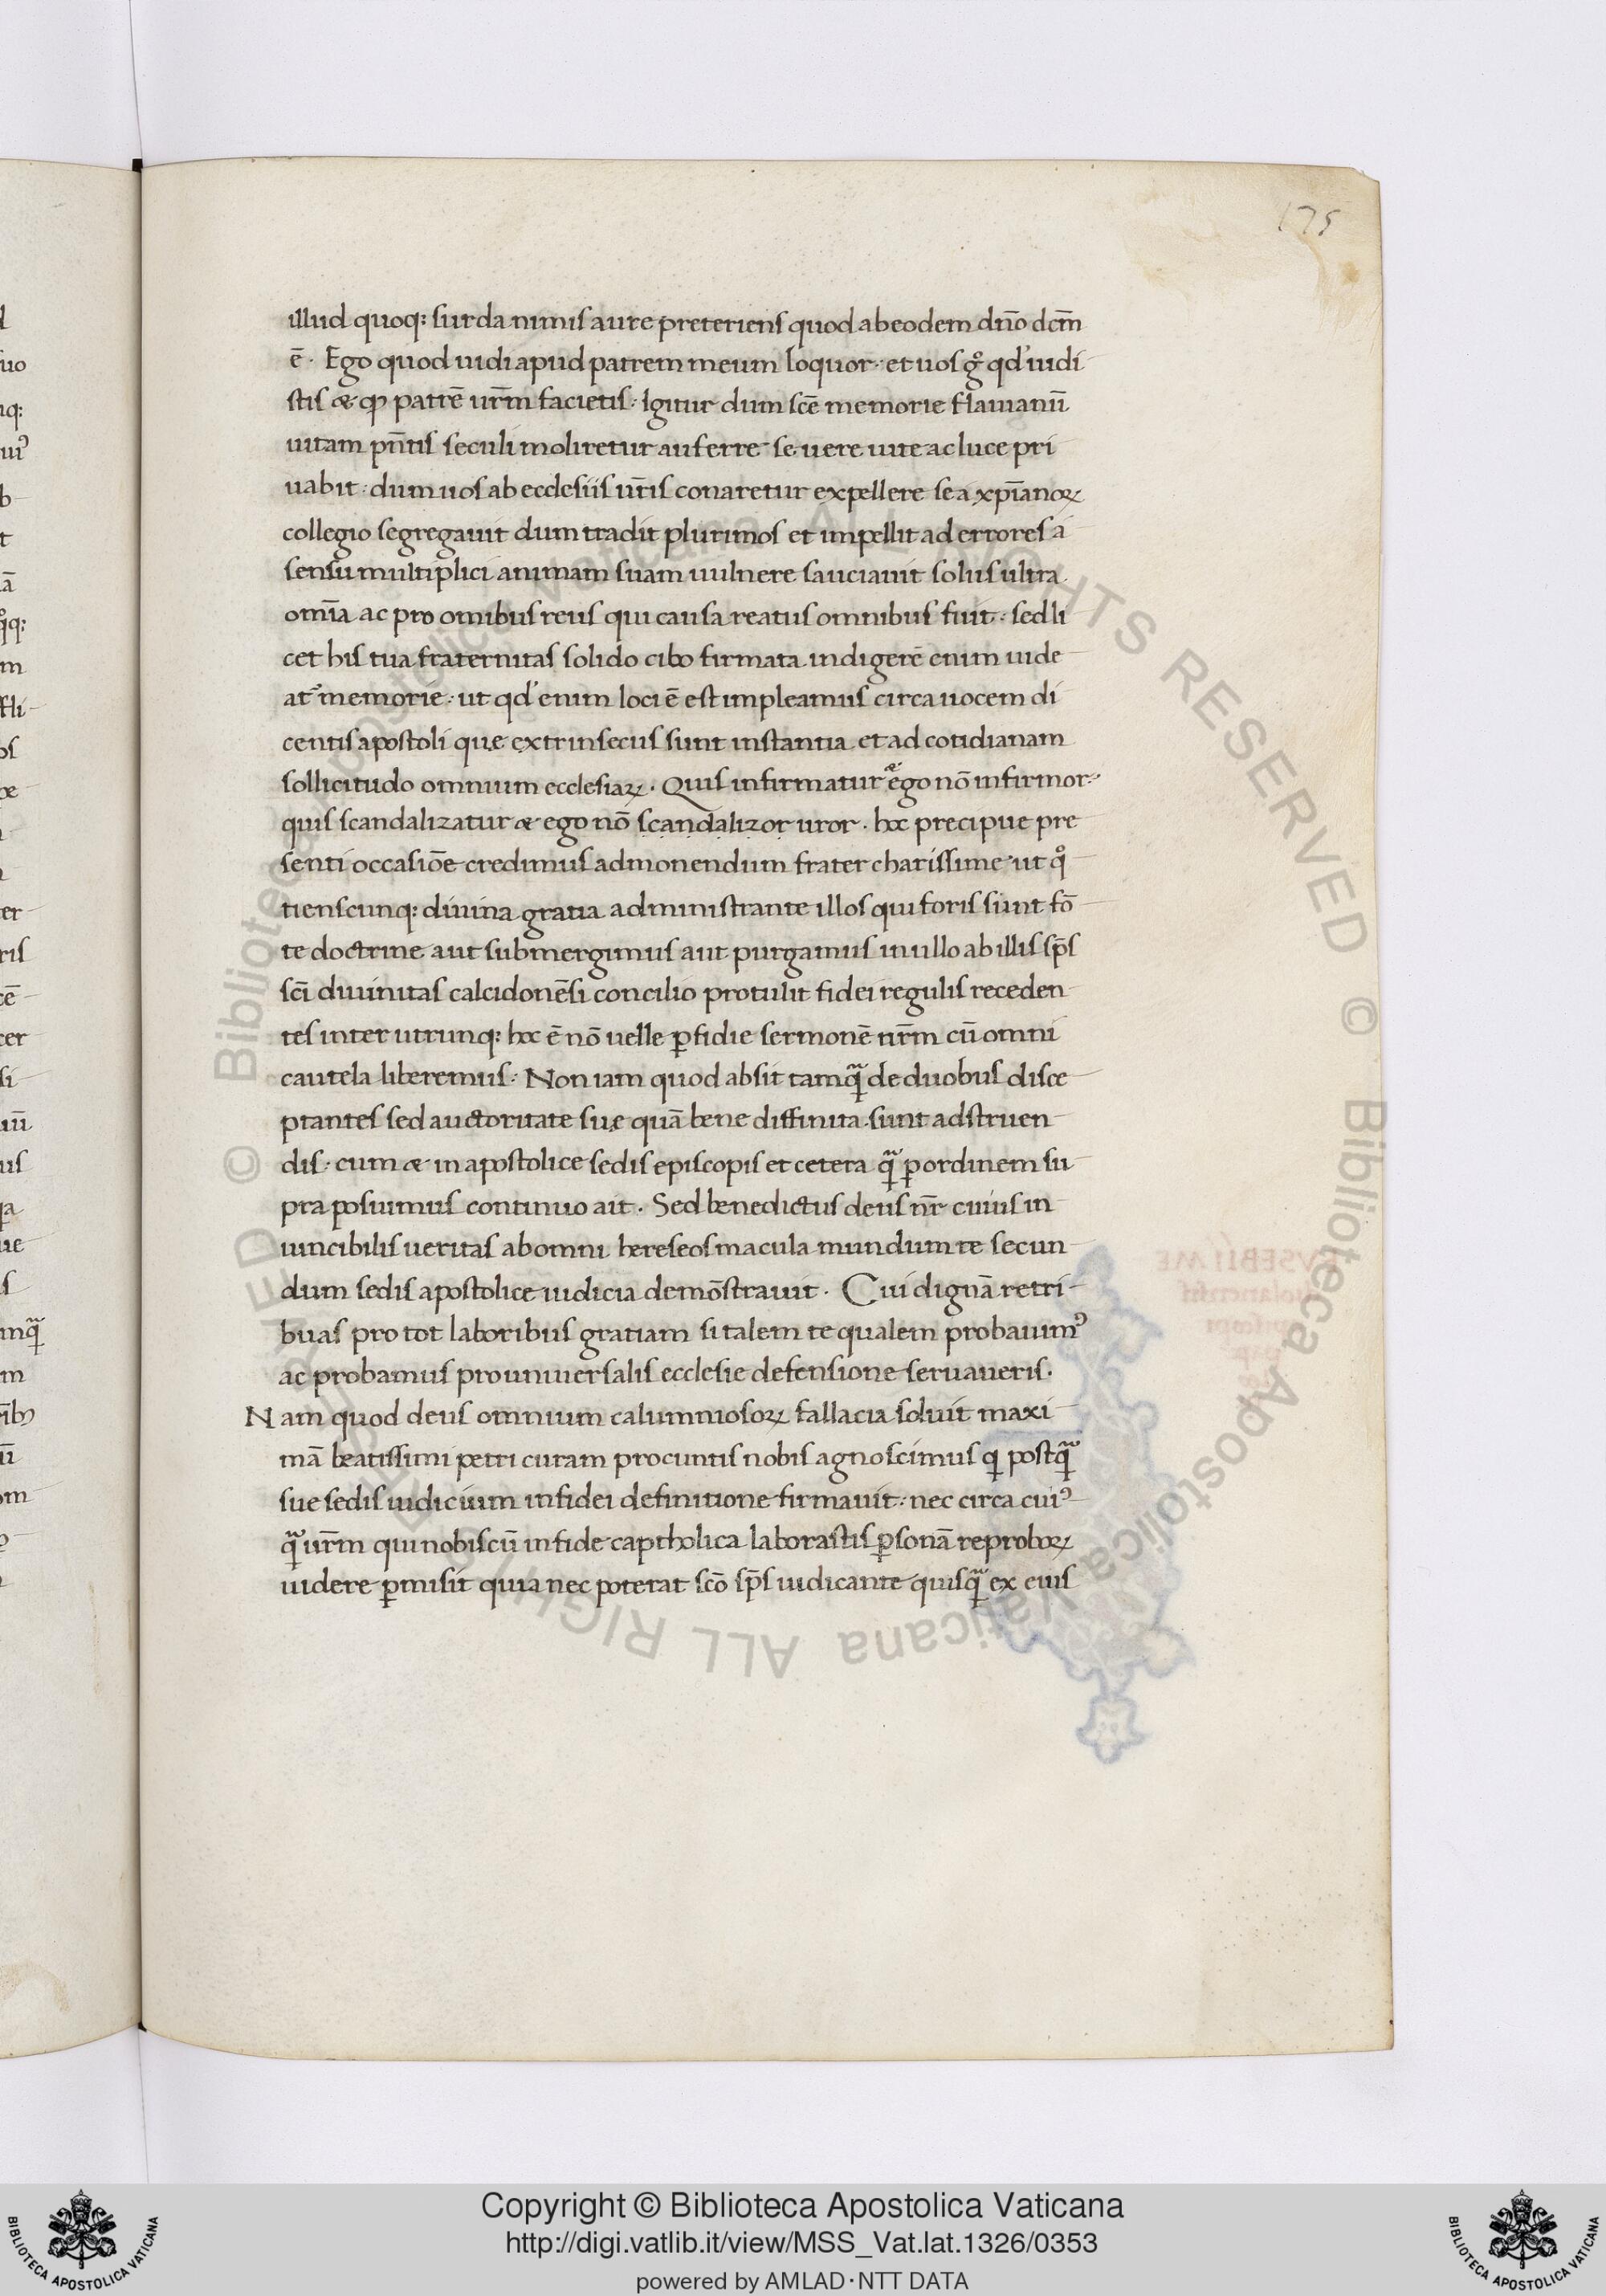 175
illud quoq: surda nimis aure preteriens quod ab eodem dn̄o dcm̄
ē. Ego quod uidi apud patrem meum loquor: et uos gͦ qd' uidi
stis & qͥ patrē ur̄m facietis: Igitur dum scē memorie flauianū
uitam pn̄tis seculi moliretur auferre se uere uite ac luce pri
uabit: dum uos ab ecclesiis ur̄is conaretur expellere se a xp̄ianoꝝ
collegio segregauit dum tradit plurimos et impellit ad errores a
sensu multiplici animam suam uulnere sauciauit solus ultra
om̄ia ac pro omibus reus qui causa reatus omnibus fuit: sed li
cet his tua fraternitas solido cibo firmata indigerē enim uide
at᷑ memorie: ut qd' enim loci ē est impleamus circa uocem di
centis apostoli que extrinsecus sunt instantia et ad cotidianam
sollicitudo omnium ecclesiaꝝ. Quis infirmatur & ego nō infirmor:
quis scandalizatur & ego nō scandalizor uror. hoc precipue pre
senti occasiōe credimus admonendum frater charissime ut qͦ
tienscunq: diuina gratia administrante illos qui foris sunt fō
te doctrine aut submergimus aut purgamus in ullo ab illis sp̄s
sc̄i diuinitas calcidonēsi concilio protulit fidei regulis receden
tes inter utrunq: hoc ē nō uelle ꝑfidie sermonē nr̄m cū omni
cautela liberemus: Non iam quod absit tamꝗᷓ de duobus disce
ptantes sed auctoritate sue quā bene diffinita sunt adstruen
dis: cum & in apostolice sedis episcopis et cetera ꝗᷓ ꝑ ordinem su
pra posuimus continuo ait. Sed benedictus deus nr̄ cuius in
uincibilis ueritas ab omni hereseos macula mundum te secun
dum sedis apostolice iudicia demōstrauit. Cui dignā retri
buas pro tot laboribus gratiam si talem te qualem probauimꝰ
ac probamus pro uniuersalis ecclesie defensione seruaueris.
Nam quod deus omnium calumniosoꝝ fallacia soluit maxi
mā beatissimi petri curam procuntis nobis agnoscimus ꝗ postꝗᷓ
sue sedis iudicium in fidei definitione firmauit: nec circa cuiꝰ
ꝗᷓ ur̄m qui nobiscū in fide captholica laborastis ꝑsonā reproboꝝ
uidere ꝑmisit quia nec poterat scō sp̄s iudicante quisꝗᷓ ex eius
© Biblioteca Apostolica Vaticana ALL RIGHTS RESERVED © Biblioteca Apostolica Vaticana ALL RIGHTS RESERVED
Copyright © Biblioteca Apostolica Vaticana
http://digi.vatlib.it/view/MSS_Vat.lat.1326/0353
powered by AMLAD·NTT DATA
BIBLIOTECA APOSTOLICA VATICANA
BIBLIOTECA APOSTOLICA VATICANA